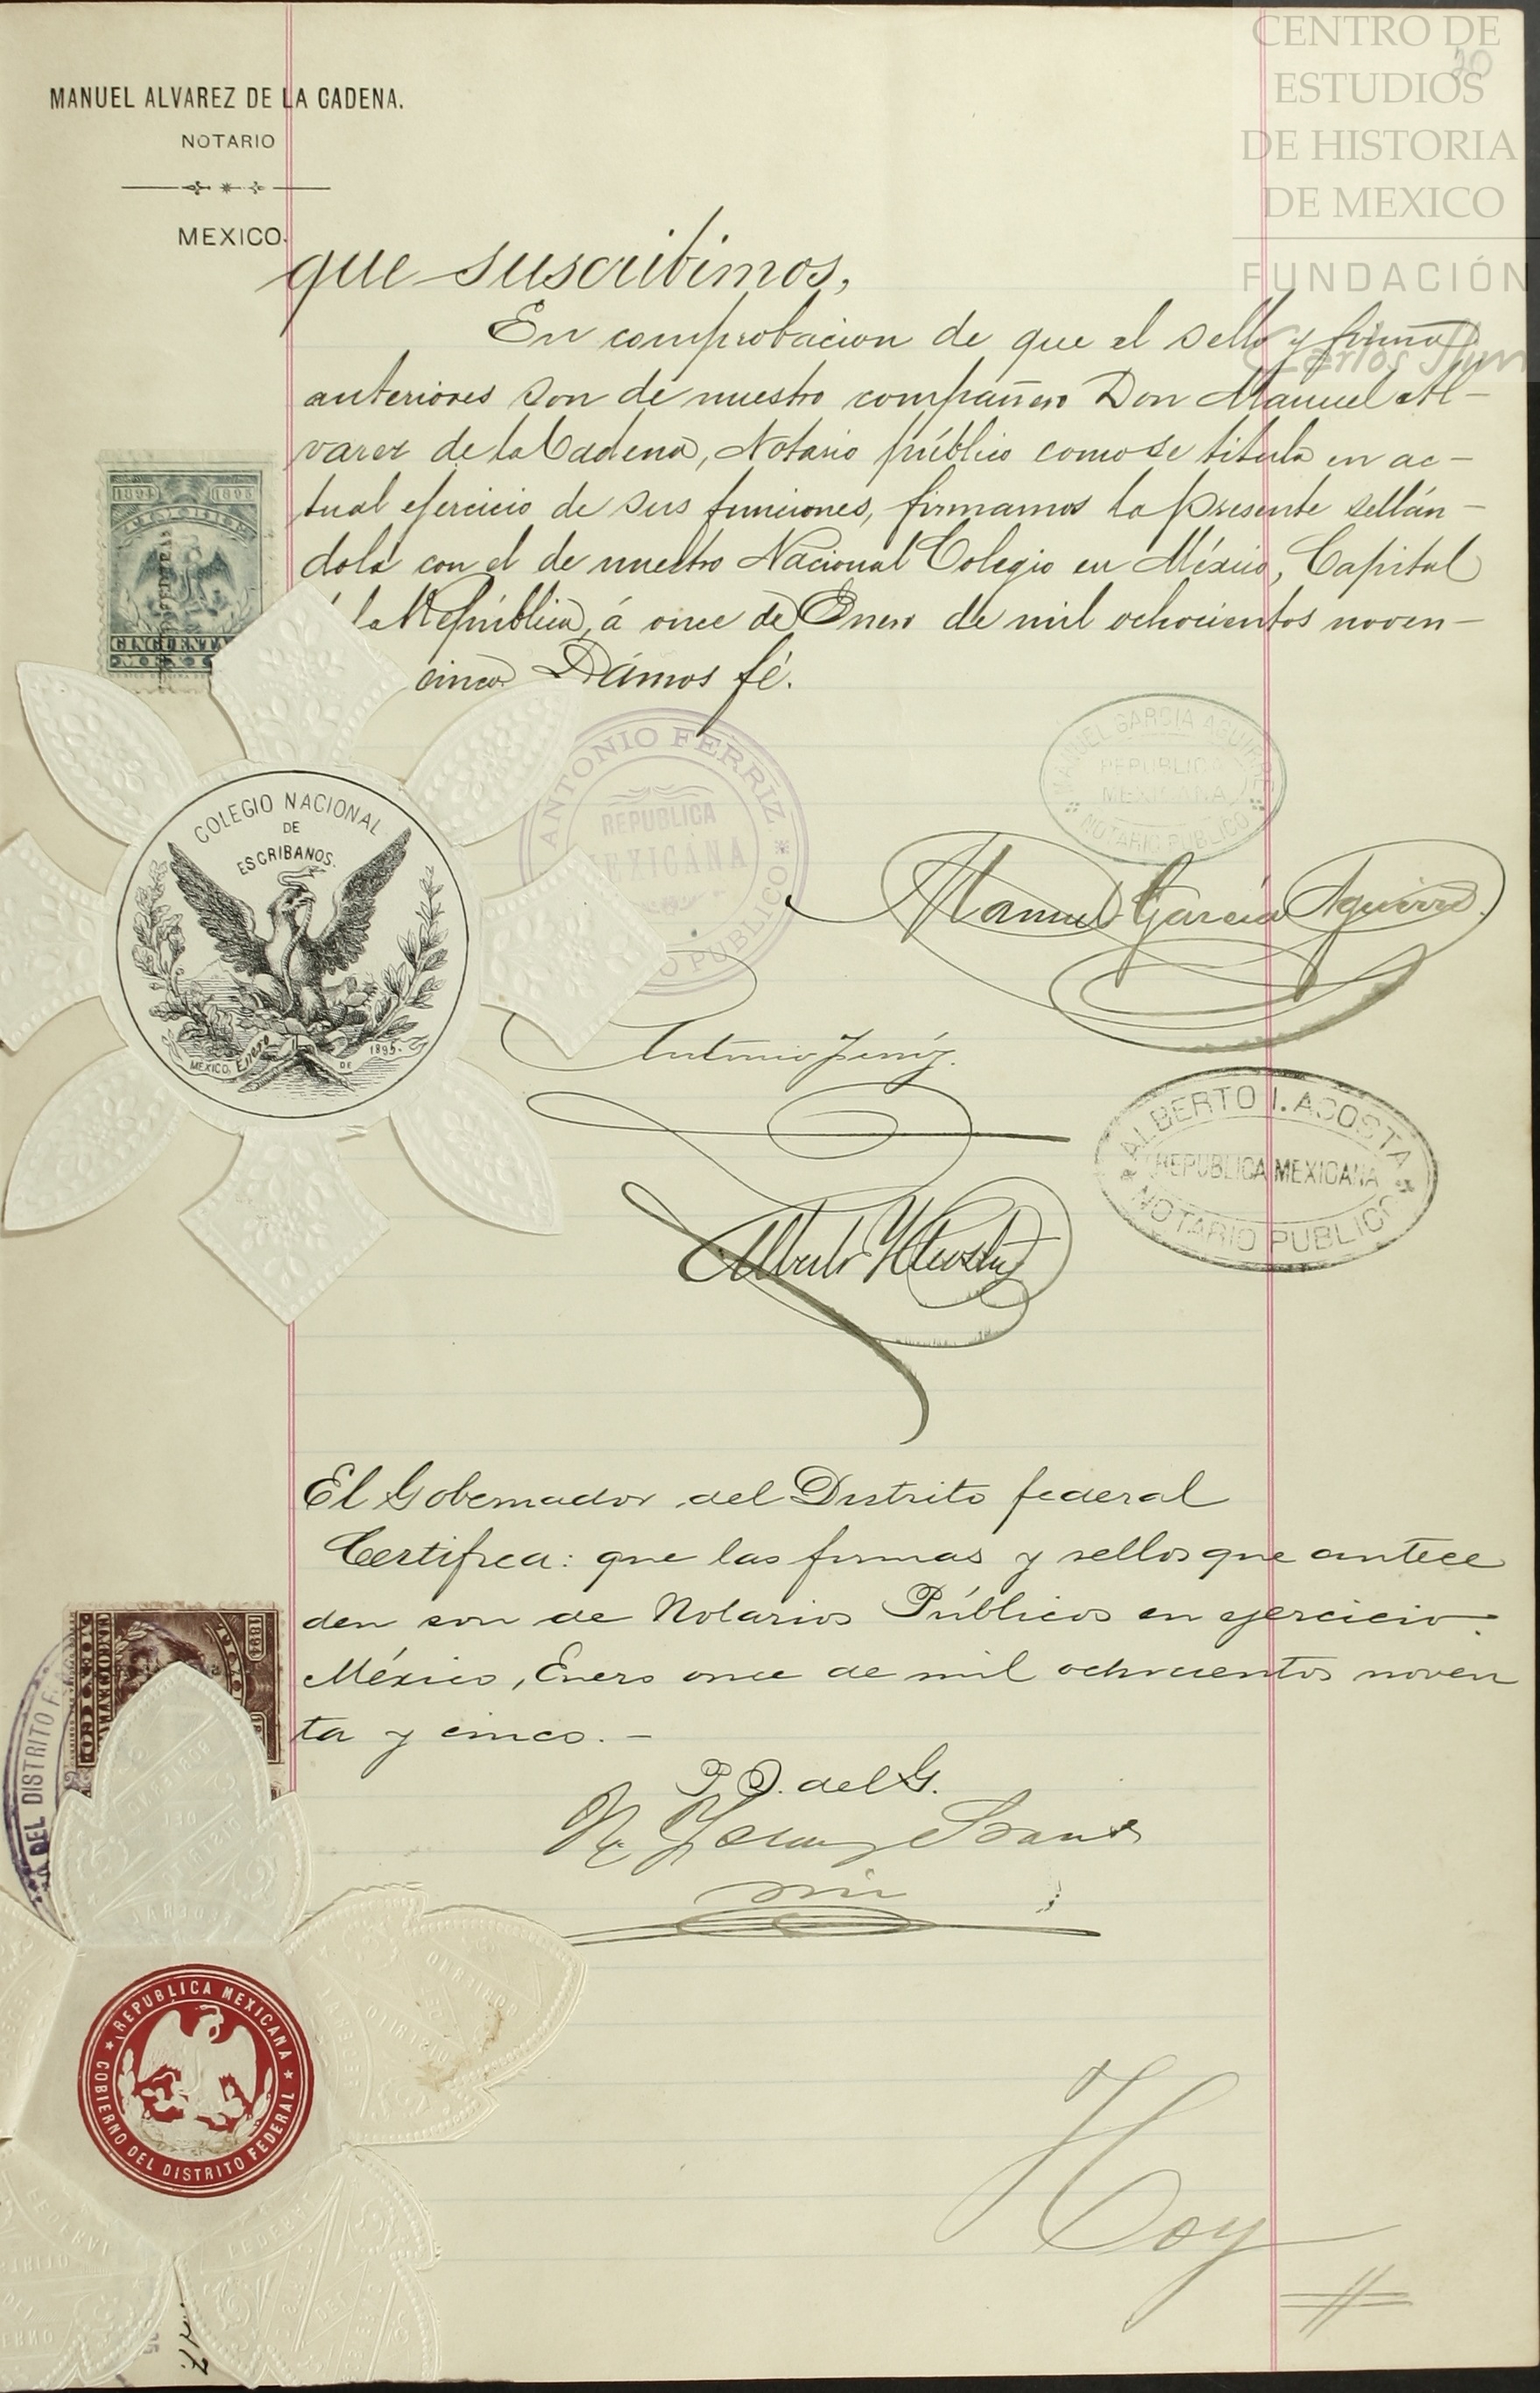 CENTRO DE
ESTUDIOS
DE HISTORIA
DE MEXICO
FUNDACIÓN
Carlos Slim
20
MANUEL ALVAREZ DE LA CADENA.
NOTARIO
MEXICO.
que suscribimos,
En comprobacion de que el sello y firma
anteriores son de nuestro compañero Don Manuel Al-
varez de la Cadena, Notario público como se titula en ac-
tual ejercicio de sus funciones, firmamos la presente sellán-
dola con el de nuestro Nacional Colegio en México, Capital
la República, á once de Enero de mil ochocientos noven-
cinco. Damos fé.
1894 1895
CINCUENTA
MEX
COLEGIO NACIONAL
DE
ESCRIBANOS.
MEXICO, Enero DE 1895.
ANTONIO FERRIZ.
REPUBLICA
MEXICANA
PUBLICO
MANUEL GARCIA AGUIRRE
REPUBLICA
MEXICANA
NOTARIO PUBLICO
Manuel García Aguirre
Antonio Ferríz.
ALBERTO I. ACOSTA
REPUBLICA MEXICANA
NOTARIO PUBLICO
Alberto Y Acosta
El Gobernador del Distrito federal
Certifica: que las firmas y sellos que antece
den son de Notarios Públicos en ejercicio.
México, Enero once de mil ochocientos noven
ta y cinco.-
P. O. del G.
srio
1894
DEL DISTRITO F
GOBIERNO
DEL
DISTRITO
FEDERAL
REPUBLICA MEXICANA
GOBIERNO DEL DISTRITO FEDERAL
Hoy